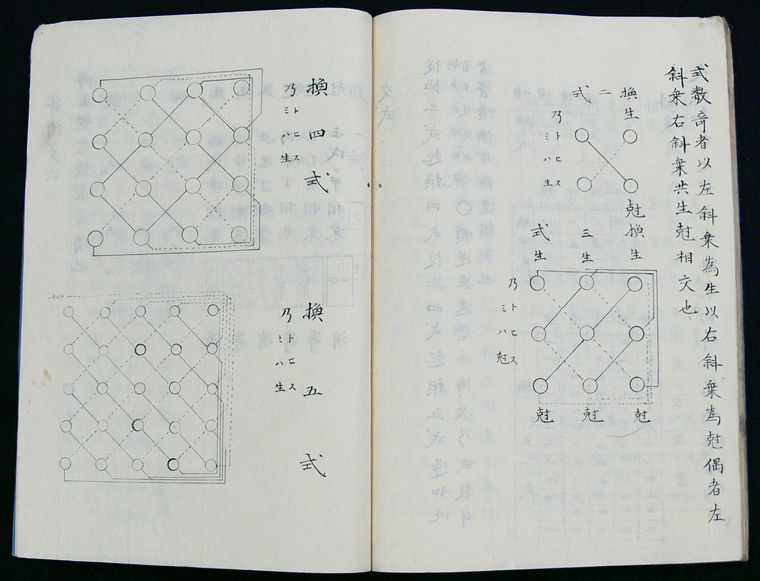 式數竒者以左斜乗為生以右斜乗為尅偶者左
斜乗右斜乗共生尅相交也
換二式
生
トヒス
乃ミハ生
尅
換三式
生
生
生
トヒス
乃ミハ尅
尅
尅
尅
換四式
トヒス
乃ミハ生
換五式
トヒス
乃ミハ生